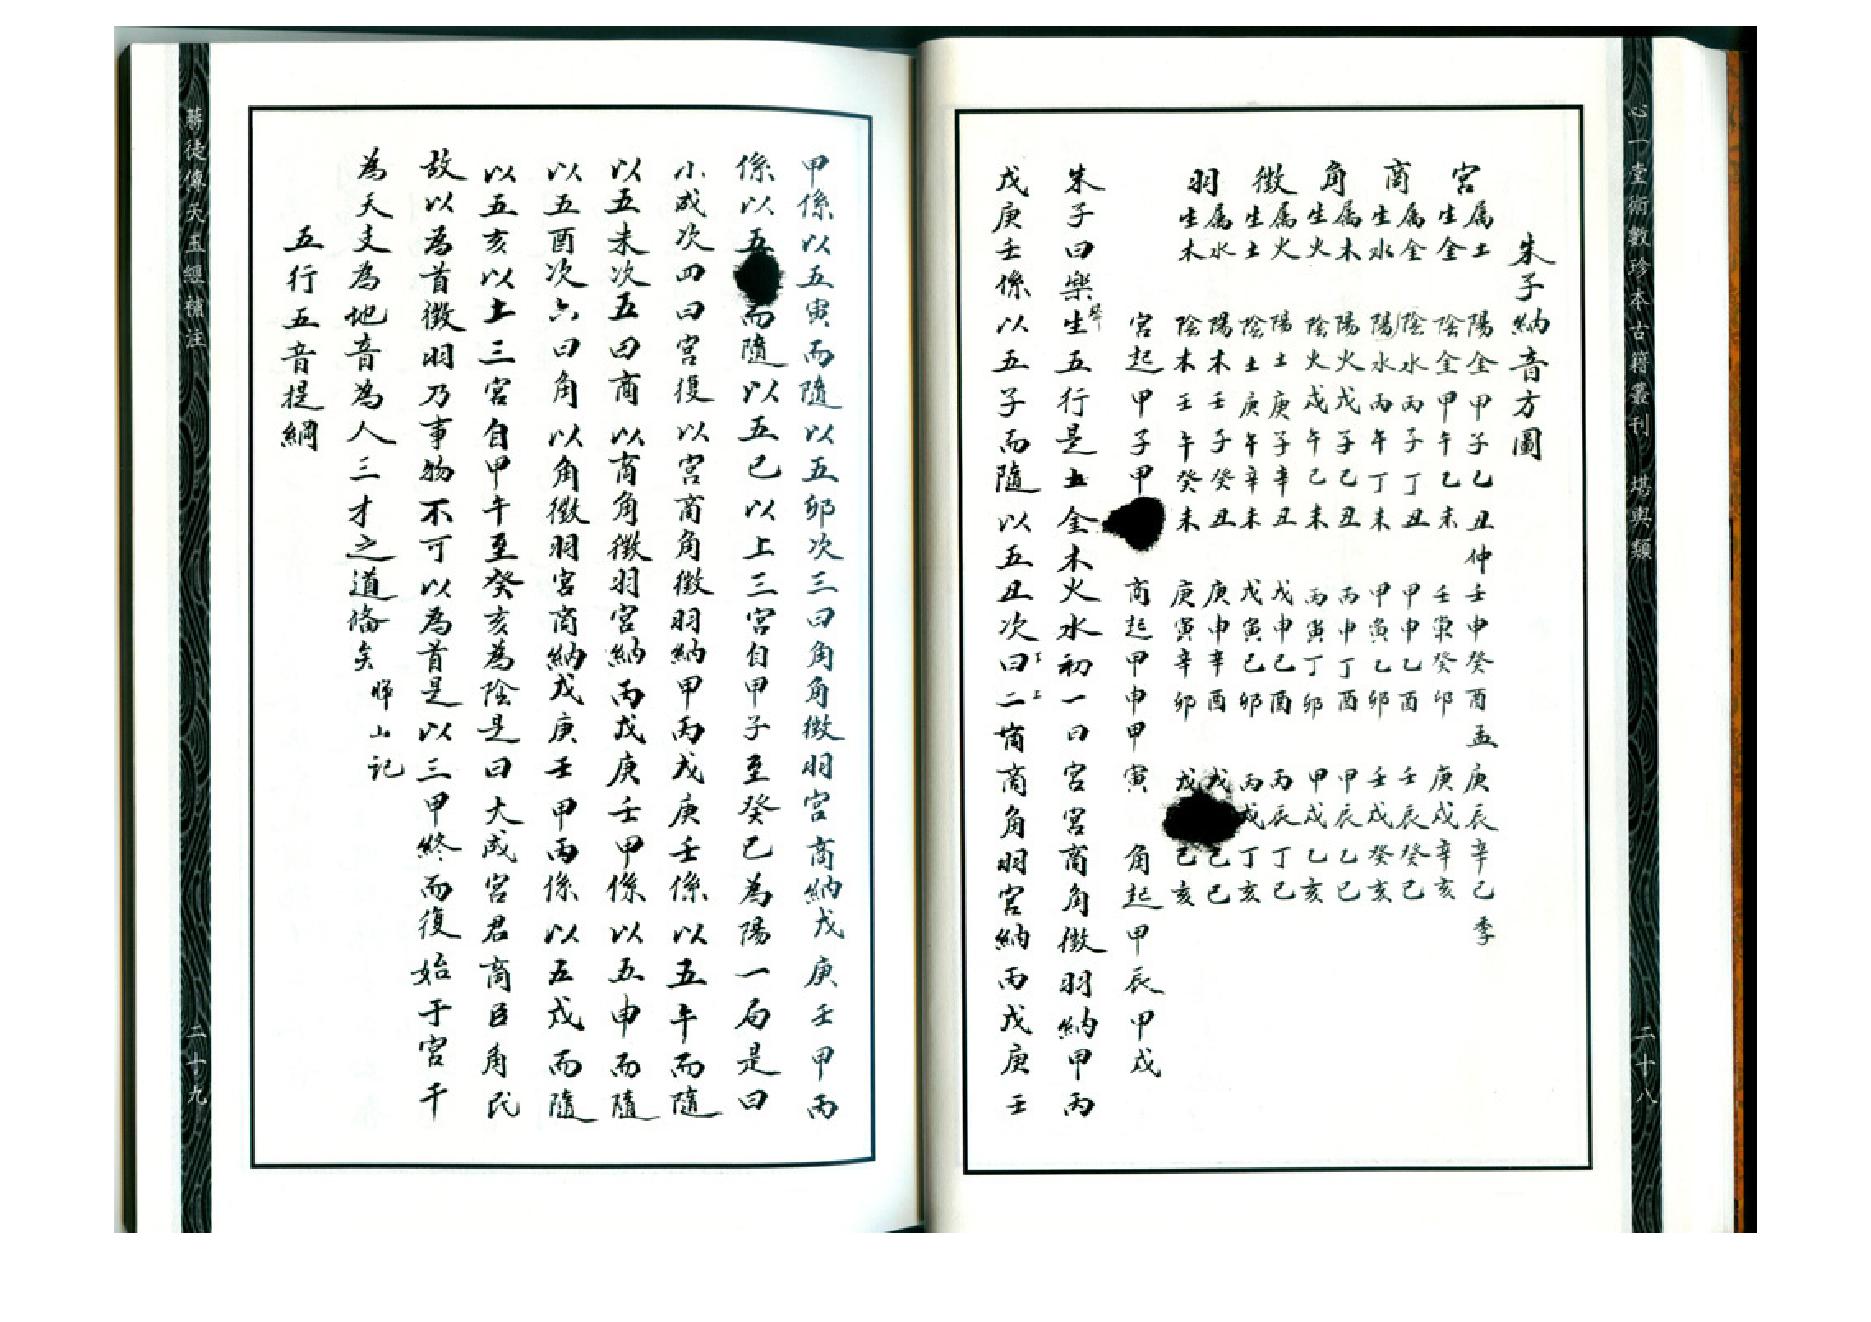 心一堂術數珍本古籍叢刊 堪輿類
二十八
朱子納音方圖
宮 属土 生金 陽金甲子乙丑仲壬申癸酉孟庚辰辛巳季
陰金甲午乙未 壬寅癸卯 庚戌辛亥
商 属金 生水 陰水丙子丁丑 甲申乙酉 壬辰癸巳
陽水丙午丁未 甲寅乙卯 壬戌癸亥
角 属木 生火 陽火戊子己丑 丙申丁酉 甲辰乙巳
陰火戊午己未 丙寅丁卯 甲戌乙亥
徵 属火 生土 陽土庚子辛丑 戊申己酉 丙辰丁巳
陰土庚午辛未 戊寅己卯 丙戌丁亥
羽 属水 生木 陽木壬子癸丑 庚申辛酉 戊 己巳
陰木壬午癸未 庚寅辛卯 戊 己亥
宮起甲子甲 商起甲申甲寅 角起甲辰甲戌
朱子曰樂生五行是土金木火水初一曰宮宮商角徵羽納甲丙
戊庚壬係以五子而隨以五丑次曰二啇商角羽宮納丙戊庚壬
甲係以五寅而隨以五卯次三曰角角徵羽宮商納戊庚壬甲丙
係以五 而隨以五巳以上三宮自甲子至癸巳為陽一局是曰
小成次四曰宮復以宮商角徵羽納甲丙戊庚壬係以五午而隨
以五未次五曰商以商角徵羽宮納丙戊庚壬甲係以五申而隨
以五酉次六曰角以角徵羽宮商納戊庚壬甲丙係以五戌而隨
以五亥以上三宮自甲午至癸亥為陰是曰大成宮君商臣角民
故以為首徵羽乃事物不可以為首是以三甲終而復始于宮干
為天支為地音為人三才之道俻矣 記
五行五音提綱
蔣徒傳天玉經補注
二十九